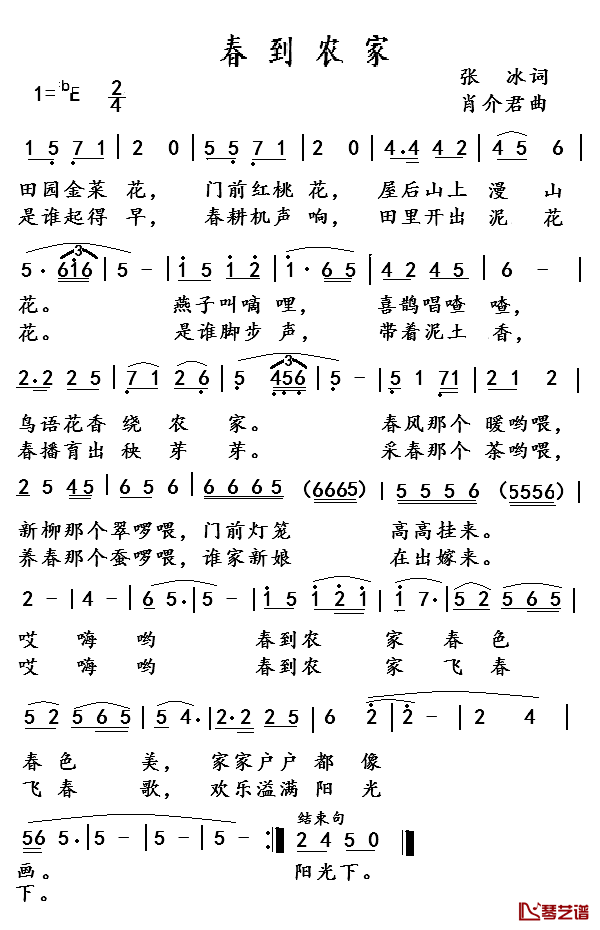 春到农家
张 冰词
1=ᵇE 2/4
肖介君曲
1 5 7 1 | 2 0 | 5 5 7 1 | 2 0 | 4·4 4 2 | 4 5 6 |
田园金菜 花， 门前红桃 花， 屋后山上 漫 山
是谁起得 早， 春耕机声 响， 田里开出 泥 花
5· 6i6 | 5 - | i 5 i 2 | i· 6 5 | 4 2 4 5 | 5 - |
花。 燕子叫嘀 哩， 喜鹊唱喳 喳，
花。 是谁脚步 声， 带着泥土 香，
2·2 2 5 | 7 1 2 6 | 5 456 | 5 - | 5 1 71 | 2 1 2 |
鸟语花香 绕 农 家。 春风那个 暖哟喂，
春播育出 秧 芽 芽。 采春那个 茶哟喂，
2 5 45 | 6 5 6 | 6 6 6 5 (6665) | 5 5 5 6 (5556) |
新柳那个翠啰喂，门前灯笼 高高挂来。
养春那个蚕啰喂，谁家新娘 在出嫁来。
2 - | 4 - | 6 5· | 5 - | i 5 i 2 i | i 7· | 5 2 5 6 5 |
哎 嗨 哟 春到农 家 春 色
哎 嗨 哟 春到农 家 飞 春
5 2 5 6 5 | 5 4· | 2·2 2 5 | 6 2 | 2 - | 2 4 |
春 色 美， 家家户户 都 像
飞 春 歌， 欢乐溢满 阳 光
结束句
56 5· | 5 - | 5 - :‖ 2 4 5 0 ‖
画。 阳光下。
下。
琴艺谱